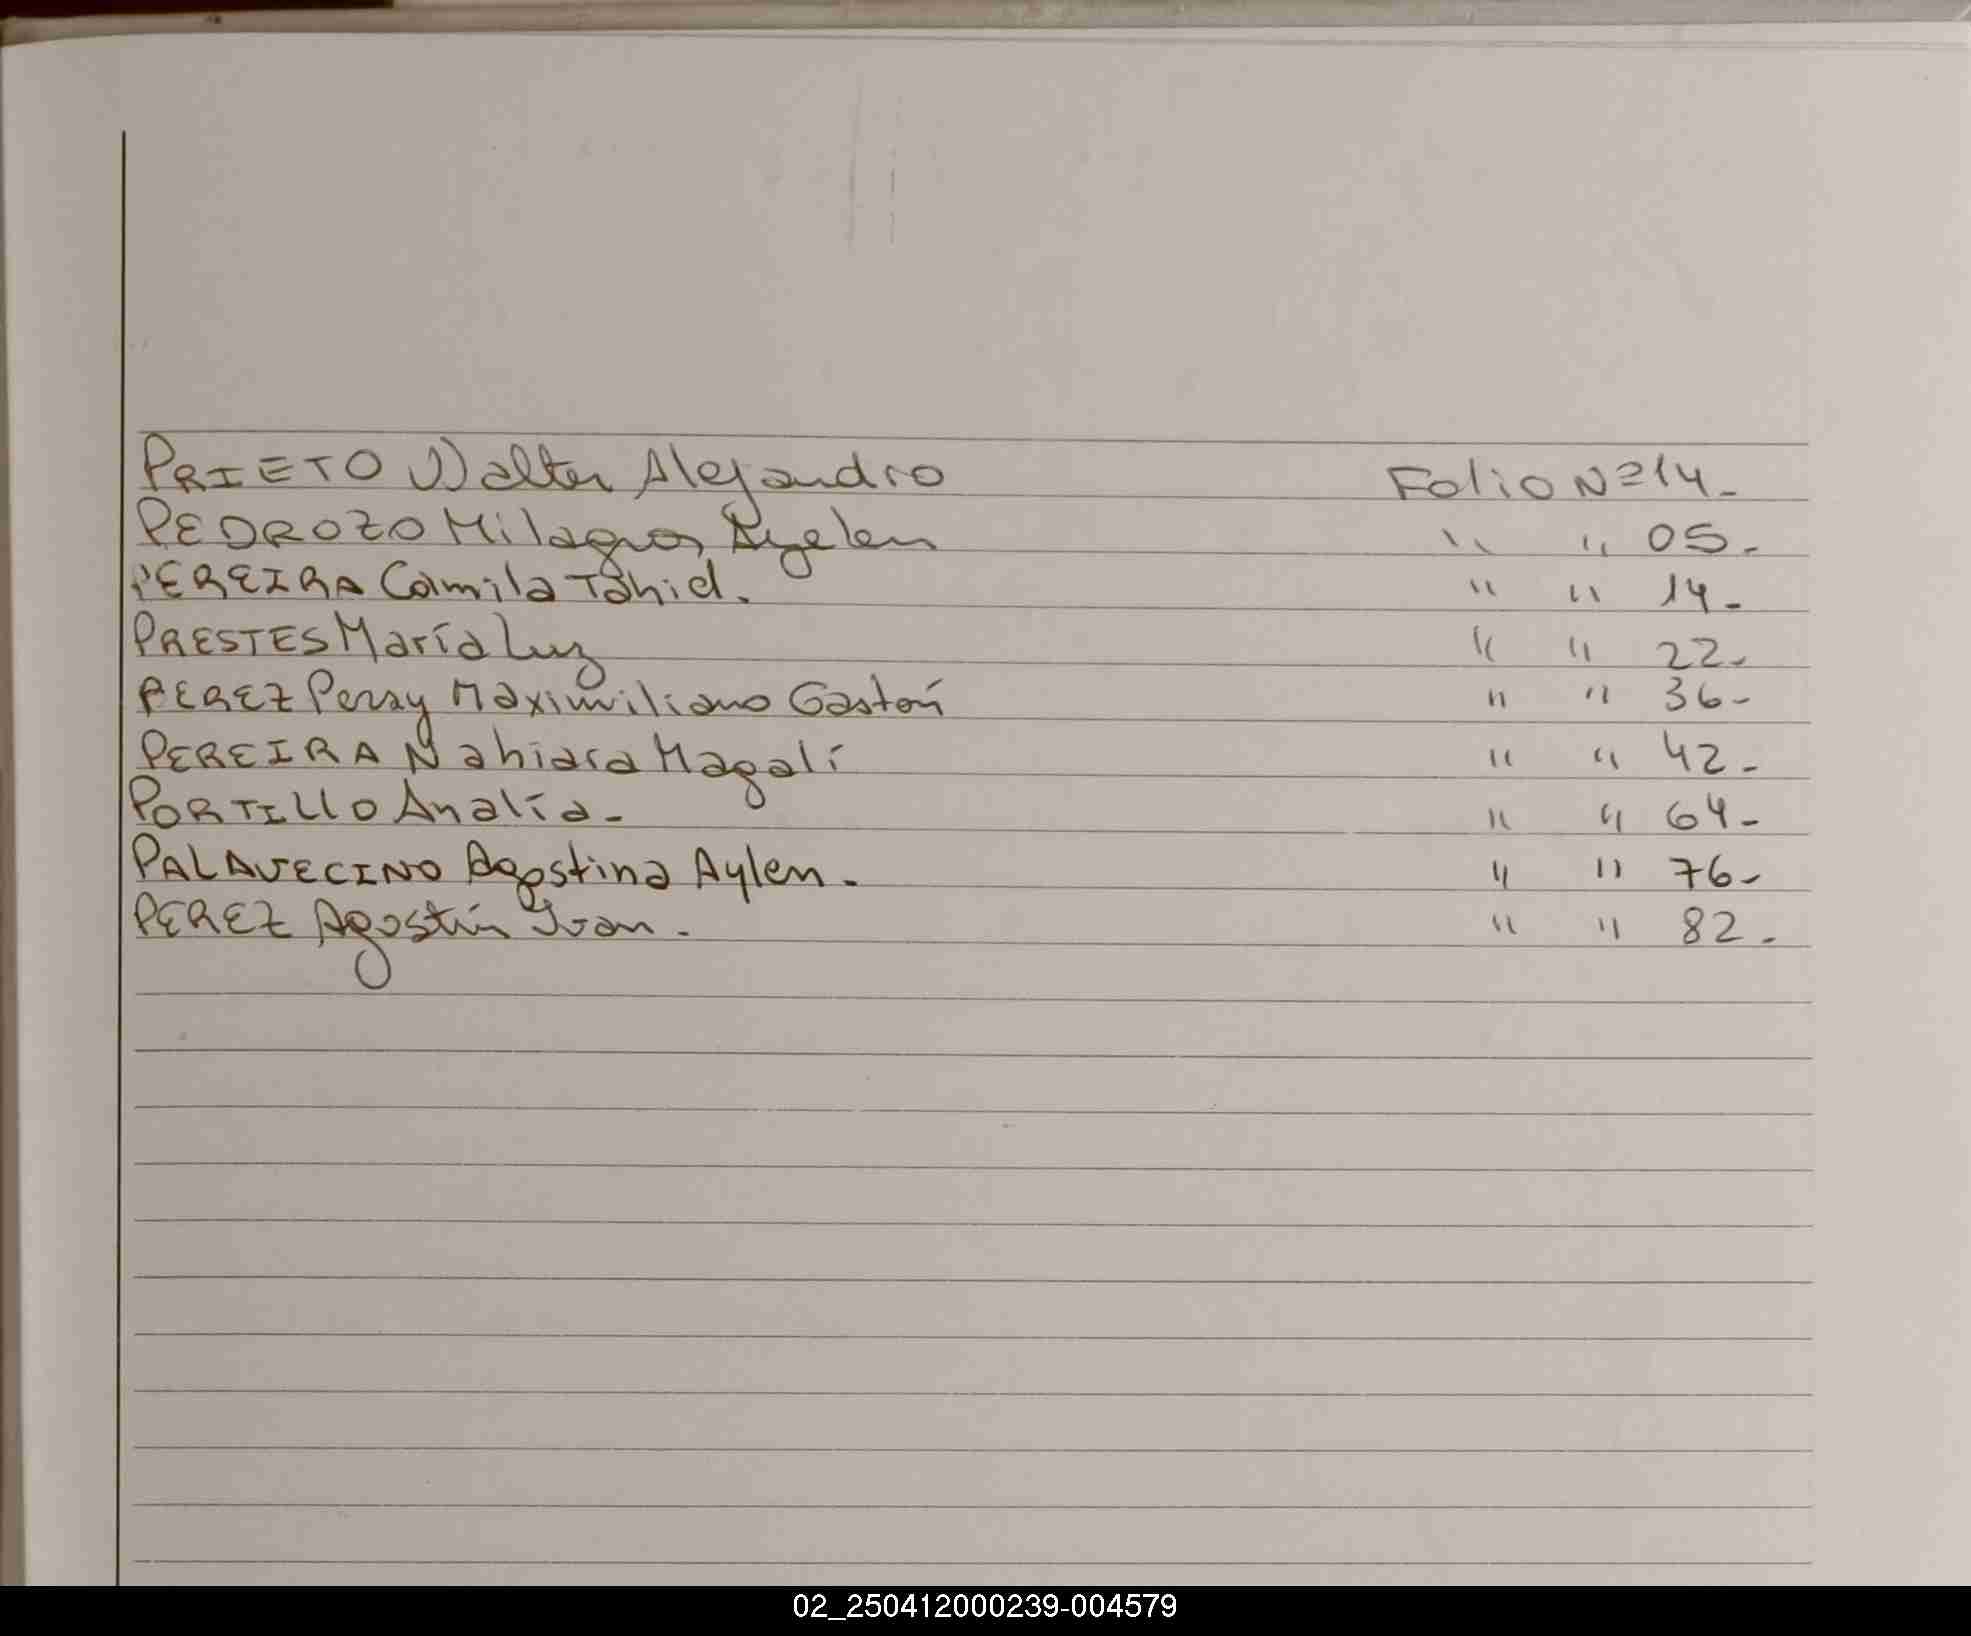 PRIETO Walter Alejandro Folio Nº 14-
PEDROZO Milagros Ayelen " " 05-
PEREIRA Camila Tahiel. " " 14-
PRESTES María Luz " " 22-
PEREZ Maximiliano Gastón " " 36-
PEREIRA Nahiara Magalí " " 42-
PORTILLO Analía- " " 64-
PALAVECINO Agostina Aylen. " " 76-
PEREZ Agostín Ivan. " " 82-
02_250412000239-004579